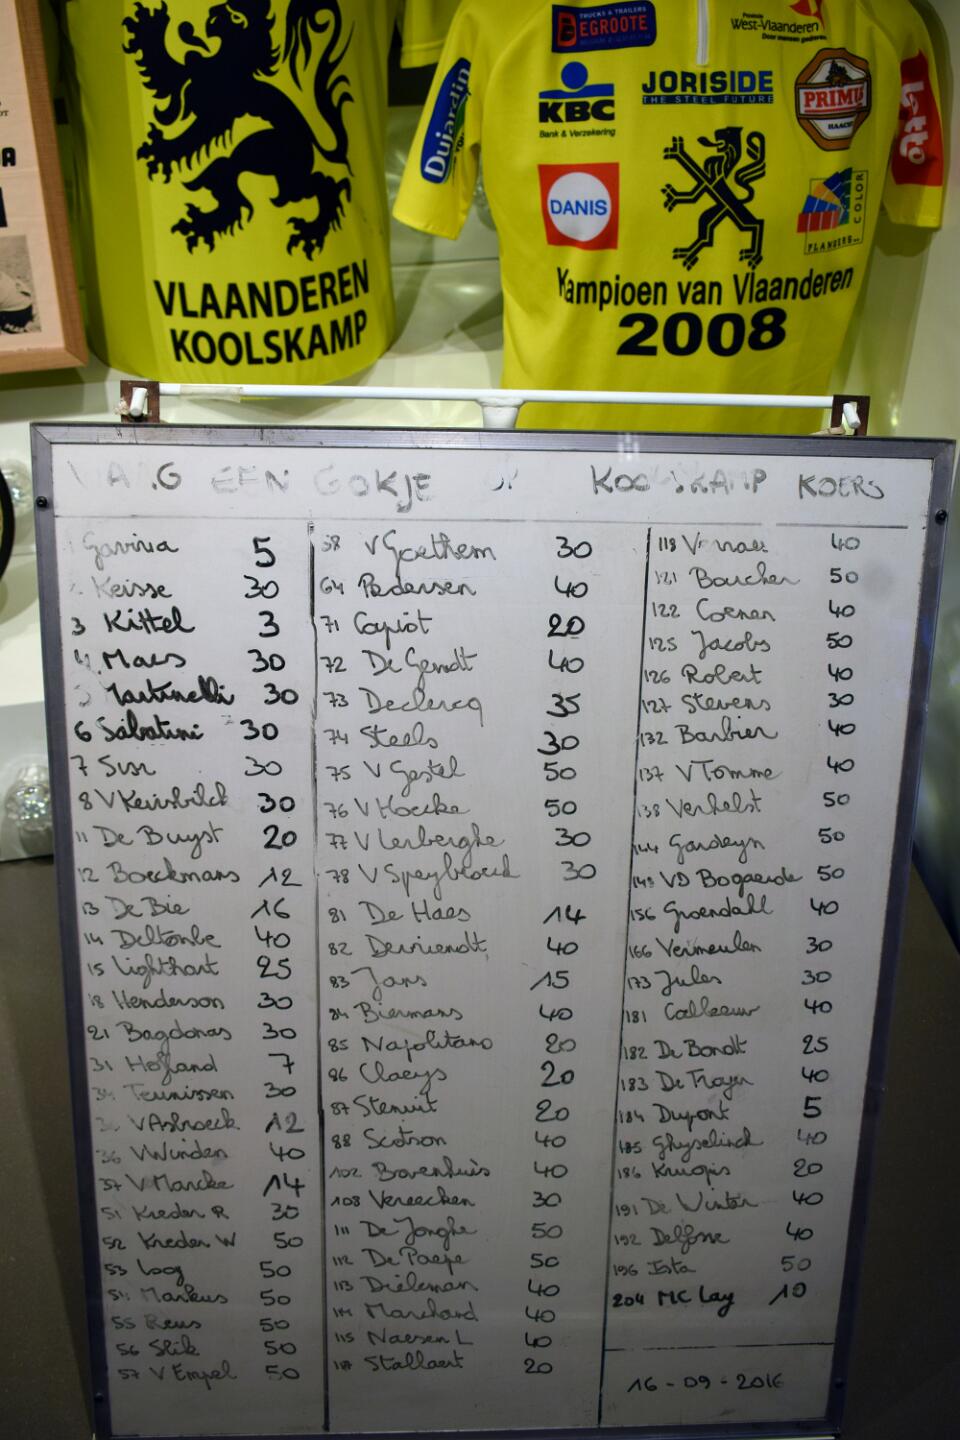 VLAANDEREN
KOOLSKAMP
TRUCKS & TRAILERS
DEGROOTE
West-Vlaanderen
Door mensen gedreven
Dujardin
KBC
Bank & Verzekering
JORISIDE
THE STEEL FUTURE
PRIMUS
HAACHT
Lotto
DANIS
FLANDERS
COLOR
Kampioen van Vlaanderen
2008
EEN GOKJE OP KOOLSKAMP KOERS
Gaviria 5
Keisse 30
3 Kittel 3
4 Maes 30
Martinelli 30
6 Sabatini 30
7 30
8 V Keirsbilck 30
11 De Buyst 20
12 Boeckmans 12
13 De Bie 16
14 Deltombe 40
15 Lighthart 25
18 Henderson 30
21 Bagdonas 30
31 Hofland 7
34 Teunissen 30
V Asbroeck 12
36 V Winden 40
37 V Marcke 14
51 Kreder R 30
52 Kreder W 50
53 Looy 50
54 Markus 50
55 Reus 50
56 Slik 50
57 V Empel 50
58 V Goethem 30
64 Pedersen 40
71 Capiot 20
72 De Gendt 40
73 Declercq 35
74 Steels 30
75 V Gestel 50
76 V Hoecke 50
77 V Lerberghe 30
78 V Speybroeck 30
81 De Haes 14
82 Devriendt 40
83 Jans 15
84 Biermans 40
85 Napolitano 20
86 Claeys 20
87 Stenuit 20
88 Scotson 40
102 Bovenhuis 40
108 Vereecken 30
111 De Jonghe 50
112 De Paepe 50
113 Dieleman 40
114 Marchand 40
115 Naesen L 40
117 Stallaert 20
118 40
121 Boucher 50
122 Coenen 40
125 Jacobs 50
126 Robert 40
127 Stevens 30
132 Barbier 40
137 V Tomme 40
138 Verhelst 50
144 Gardeyn 50
145 VD Bogaerde 50
156 Groendahl 40
166 Vermeulen 30
173 Jules 30
181 Calleeuw 40
182 De Bondt 25
183 De Troyer 40
184 Dupont 5
185 Ghyselinck 40
186 Krugis 20
191 De Winter 40
192 Delfosse 40
196 Ista 50
204 MC Lay 10
16-09-2016